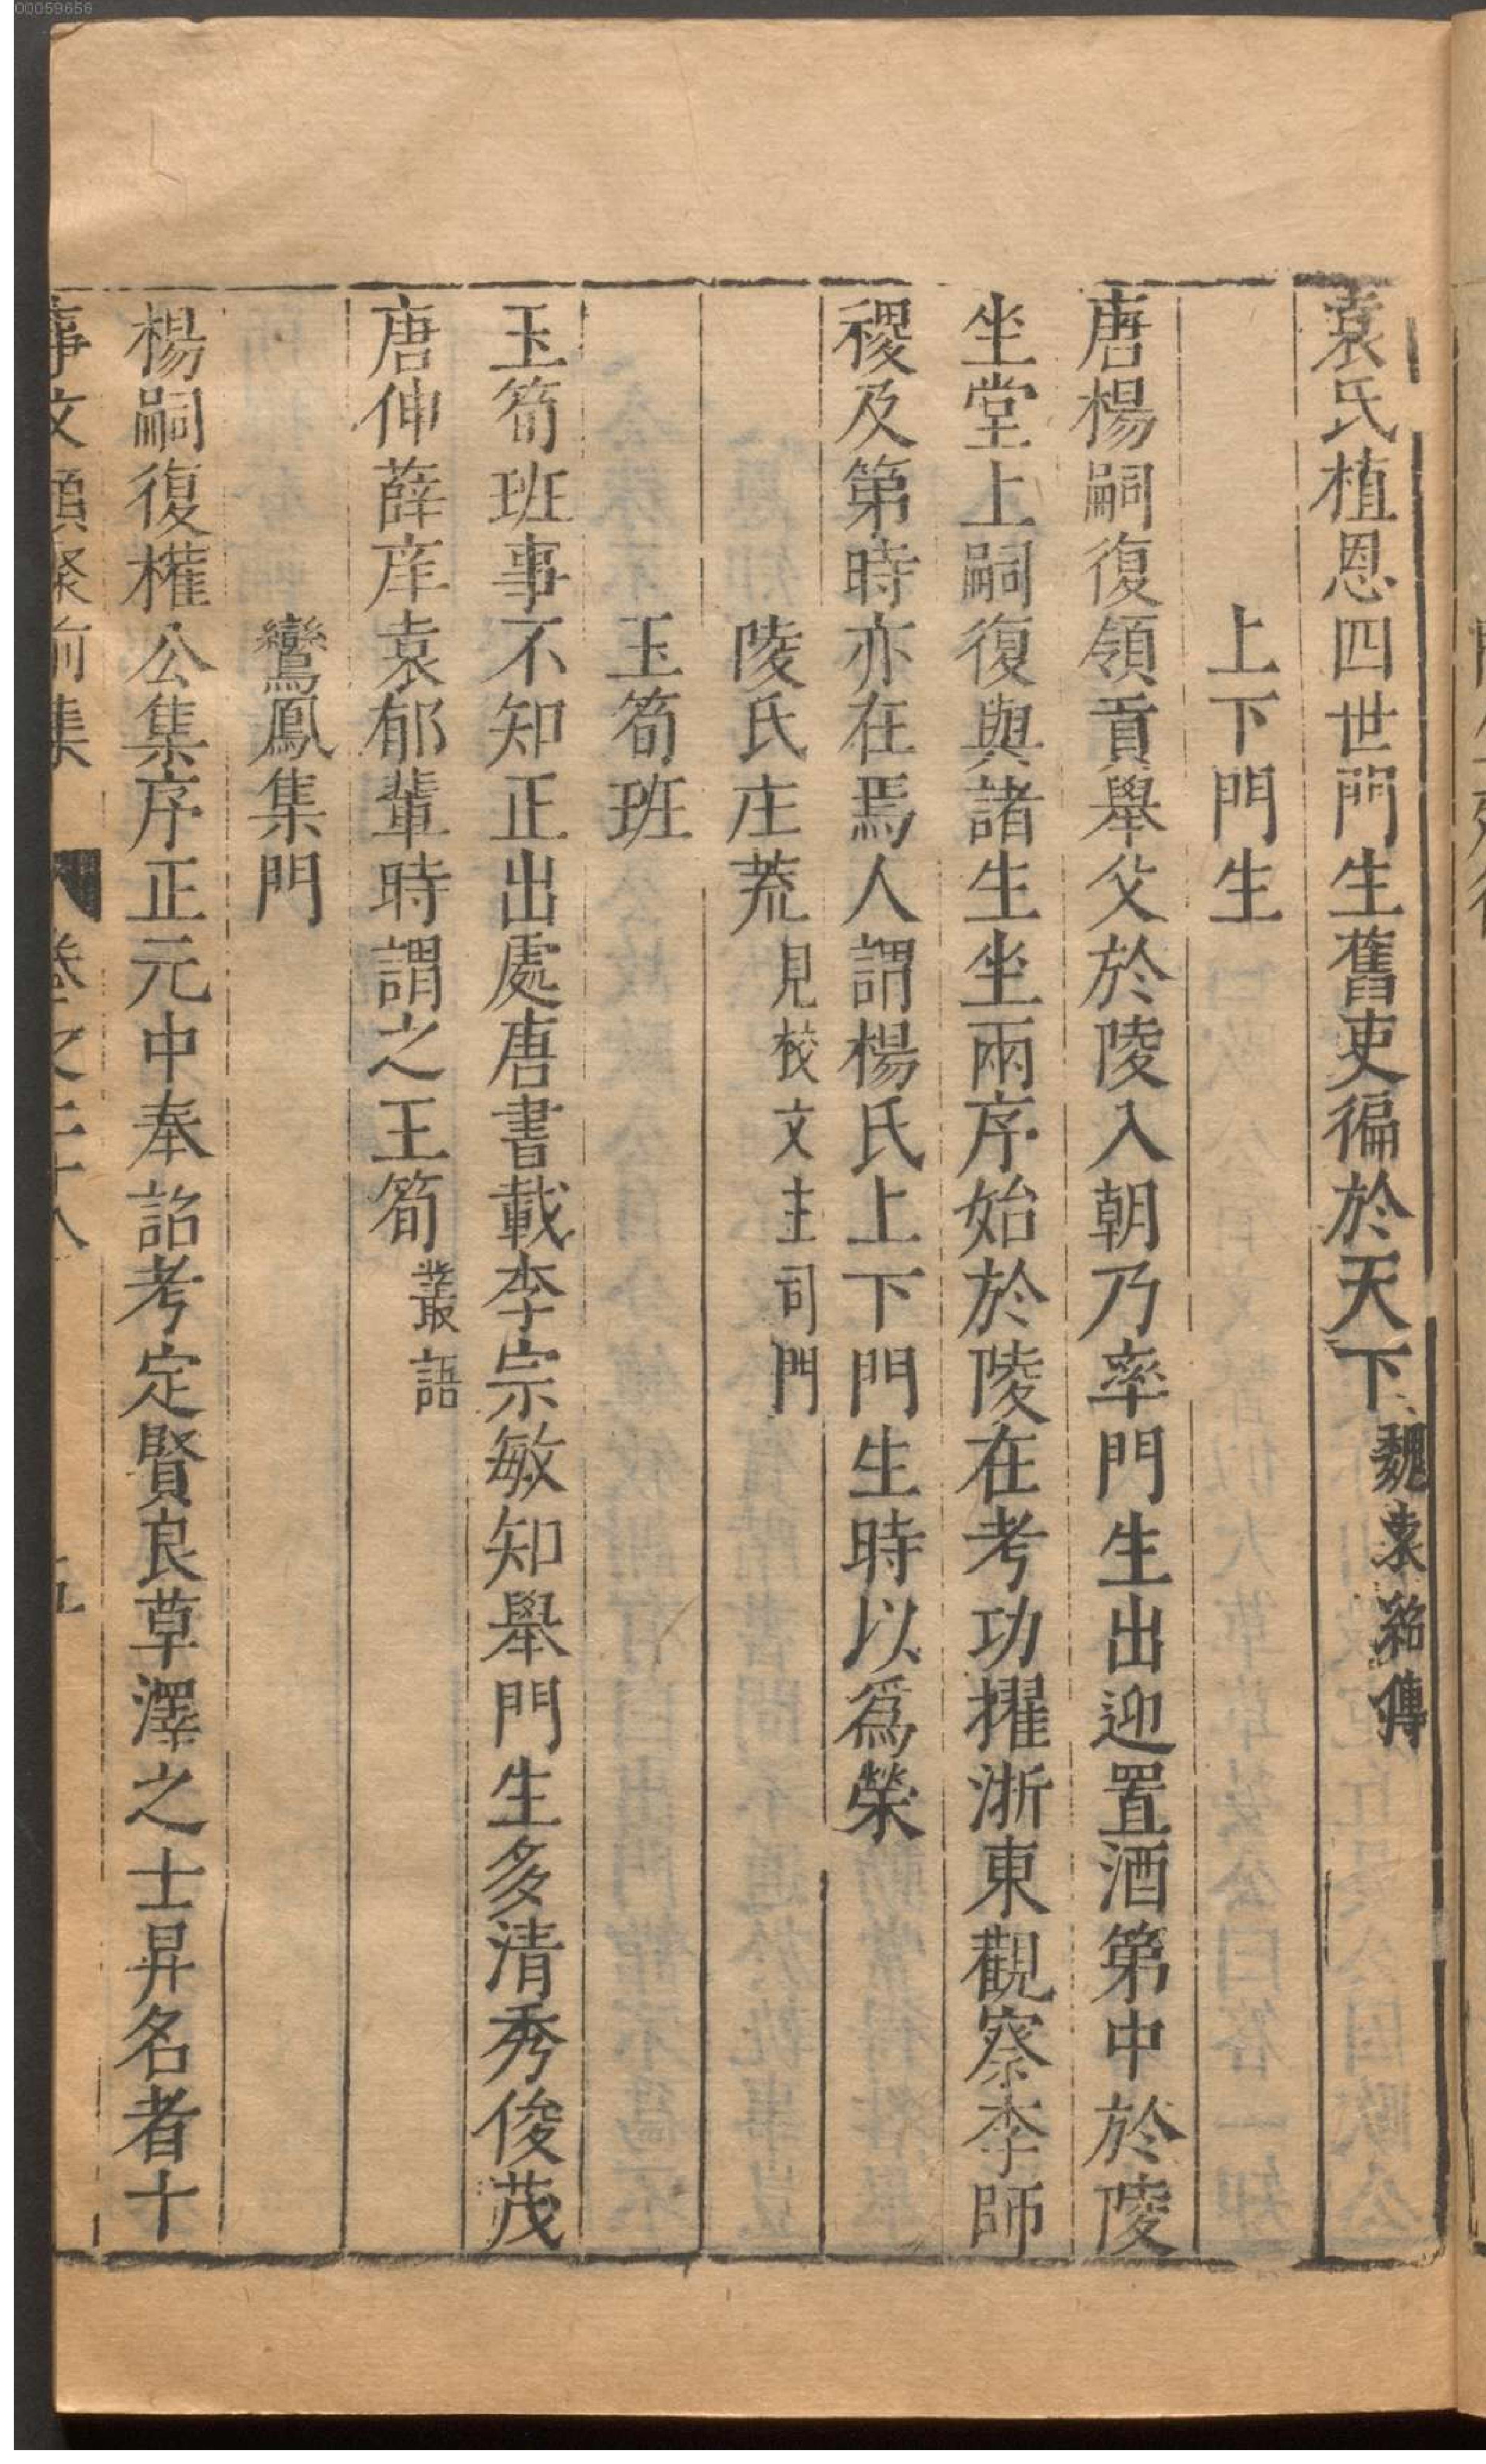 袁氏植恩四世門生舊吏徧於天下魏袁紹傳
上下門生
唐楊嗣復領貢舉父於陵入朝乃率門生出迎置酒第中於陵
坐堂上嗣復與諸生坐兩序始於陵在考功擢浙東觀察李師
稷及第時亦在焉人謂楊氏上下門生時以爲榮
陵氏庄荒見校文主司門
玉筍班
玉筍班事不知正出處唐書載李宗敏知舉門生多清秀俊茂
唐伸薛庠袁郁輩時謂之王筍叢語
鸞鳳集門
楊嗣復權公集序正元中奉詔考定賢良草澤之士昇名者十
事文類聚前集 卷之二十八 五
00059656